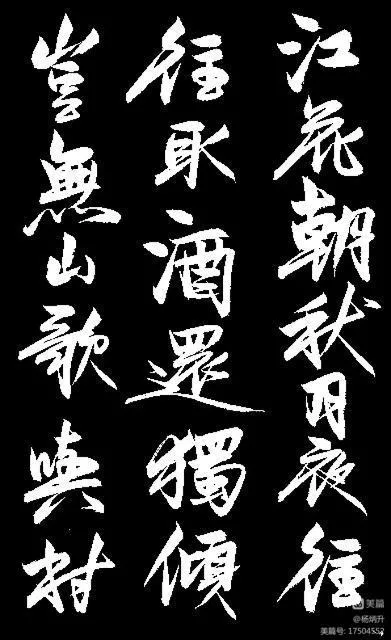 江花朝秋月夜往
往取酒還獨傾
豈無山歌與村
美篇
@杨炳升
美篇号: 17504552